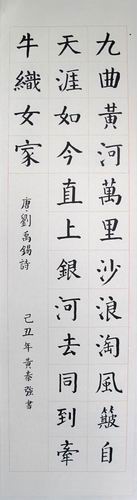 九曲黃河萬里沙浪淘風簸自
天涯如今直上銀河去同到牽
牛織女家
唐劉禹錫詩
己丑年黃泰強書